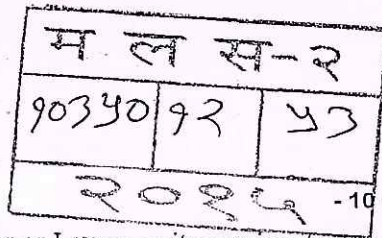 म ल स-२
१०३५० १२ ५३
२०१५ - 10